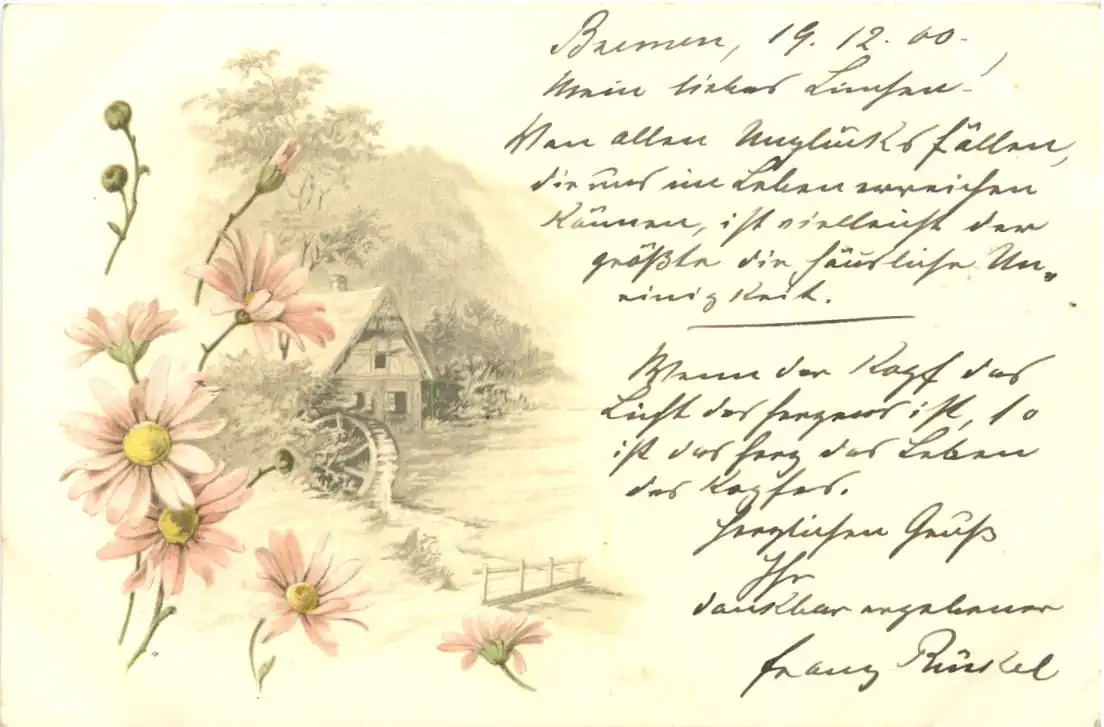 Bremen, 19. 12. 00.
Mein liebes Linchen!
Von allen Unglücksfällen,
die uns im Leben erreichen
können, ist vielleicht der
größte die häusliche Un„
einigkeit.
Wenn der Kopf das
Licht des Herzens ist, so
ist das Herz das Leben
des Kopfes.
Herzlichen Gruß
Ihr
dankbar ergebener
Franz